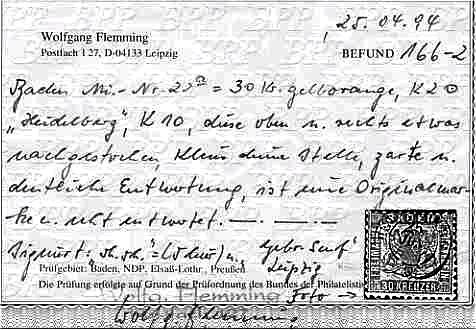 Wolfgang Flemming
Postfach 127, D-04133 Leipzig
25.04.94
BEFUND 166-2
Baden Mi.-Nr. 22a = 30 Kr. gelborange, K20
„Heidelberg", K10, diese oben u. rechts etwas
nachgestochen, kleine dünne Stelle, zarte u.
deutliche Entwertung, ist eine Originalmar-
ke u. echt entwertet.
Signiert:
Leipzig
Prüfgebiet: Baden, NDP, Elsaß-Lothr., Preußen
Die Prüfung erfolgte auf Grund der Prüfordnung des Bundes der Philatelistis
Foto →
Wolfg. Flemming
Wolfg. Flemming
BADEN
30 KREUZER